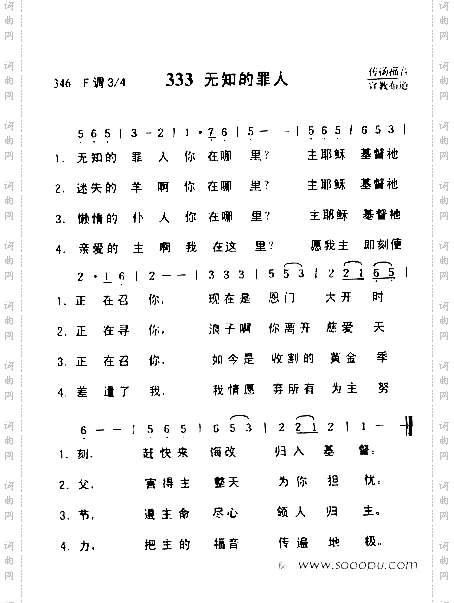 346 F调3/4
333 无知的罪人
传扬福音
宣教布道
5 6 5 | 3 - 2 | 1 · 7 6 | 5 - - | 5 6 5 | 6 5 3 |
1. 无知的 罪 人 你 在哪 里? 主耶稣 基督祂
2. 迷失的 羊 啊 你 在哪 里? 主耶稣 基督祂
3. 懒惰的 仆 人 你 在哪 里? 主耶稣 基督祂
4. 亲爱的 主 啊 我 在这 里? 愿我主 即刻使
2 · 1 6 | 2 - - | 3 3 3 | 5 5 3 | 2 2 1 6 5 |
1. 正 在召 你, 现在是 恩门 大开 时
2. 正 在寻 你, 浪子啊 你离开 慈爱 天
3. 正 在召 你, 如今是 收割的 黄金 季
4. 差 遣了 我, 我情愿 弃所有 为主 努
6 - - | 5 6 5 | 6 5 3 | 2 2 1 2 | 1 - - ‖
1. 刻, 赶快来 悔改 归入 基 督。
2. 父, 害得主 整天 为你 担 忧。
3. 节, 遵主命 尽心 领人 归 主。
4. 力, 把主的 福音 传遍 地 极。
www.sooopu.com
词曲网
词曲网
词曲网
词曲网
词曲网
词曲网
词曲网
词曲网
词曲网
词曲网
词曲网
词曲网